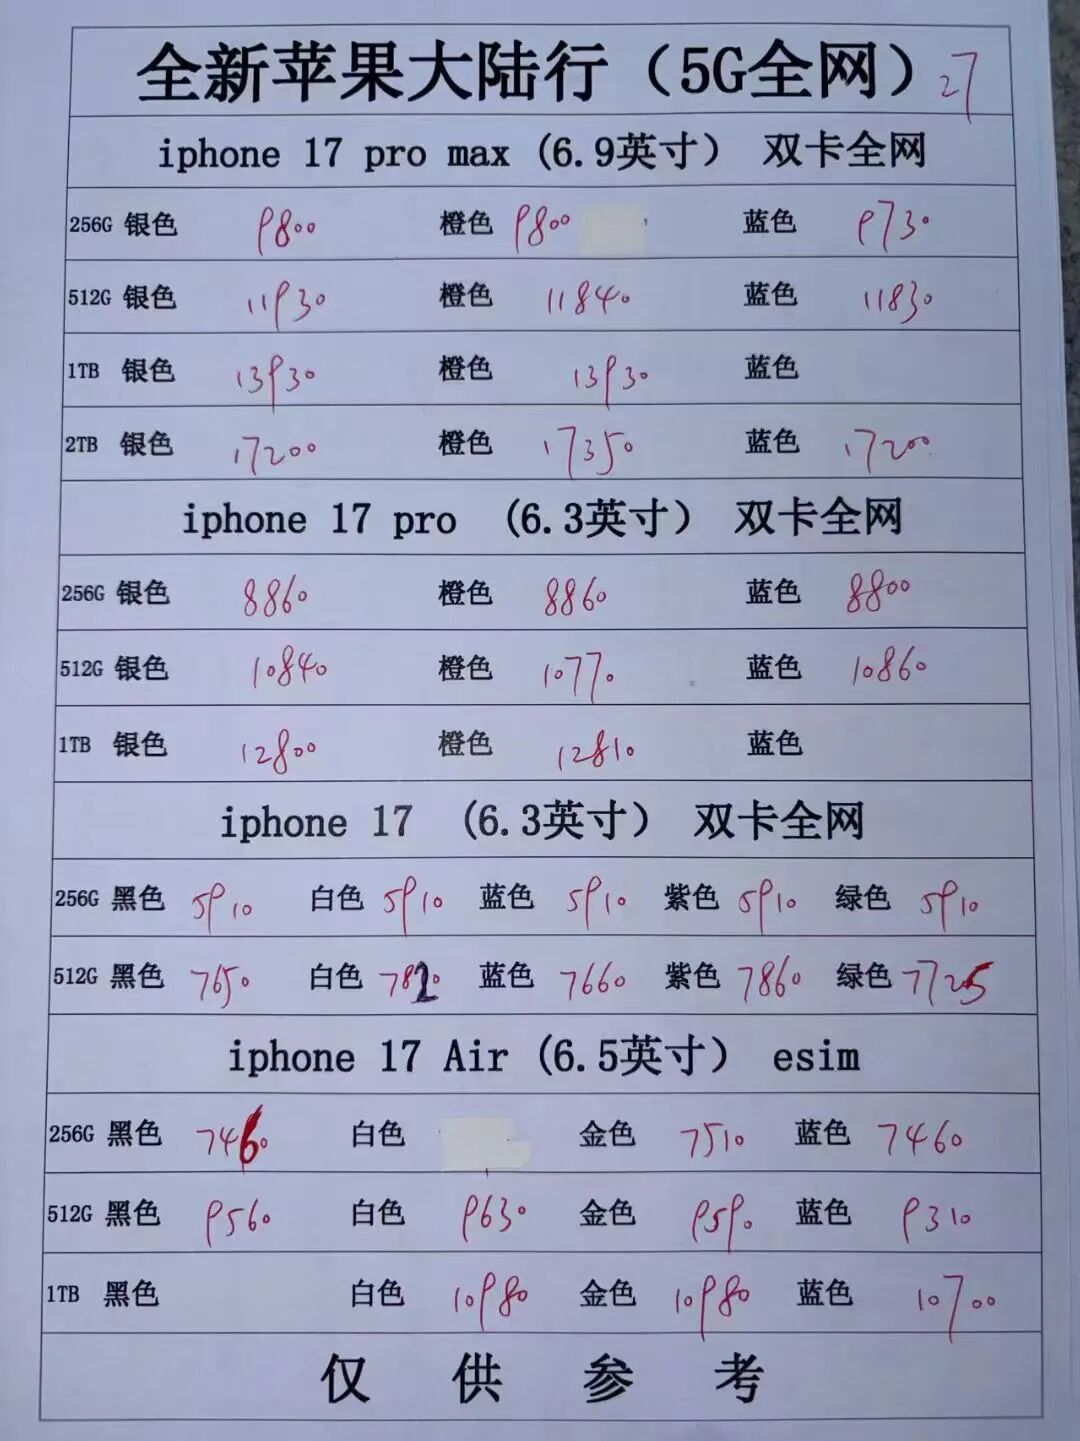 全新苹果大陆行（5G全网）27
iphone 17 pro max (6.9英寸） 双卡全网
256G 银色 9800 橙色 9800 蓝色 9730
512G 银色 11930 橙色 11840 蓝色 11830
1TB 银色 13930 橙色 13930 蓝色
2TB 银色 17200 橙色 17350 蓝色 17200
iphone 17 pro (6.3英寸） 双卡全网
256G 银色 8860 橙色 8860 蓝色 8800
512G 银色 10840 橙色 10770 蓝色 10860
1TB 银色 12800 橙色 12810 蓝色
iphone 17 (6.3英寸） 双卡全网
256G 黑色 5910 白色 5910 蓝色 5910 紫色 5910 绿色 5910
512G 黑色 7650 白色 7820 蓝色 7660 紫色 7860 绿色 7725
iphone 17 Air (6.5英寸） esim
256G 黑色 7460 白色 金色 7510 蓝色 7460
512G 黑色 9560 白色 9630 金色 9590 蓝色 9310
1TB 黑色 白色 10980 金色 10980 蓝色 10700
仅供参考